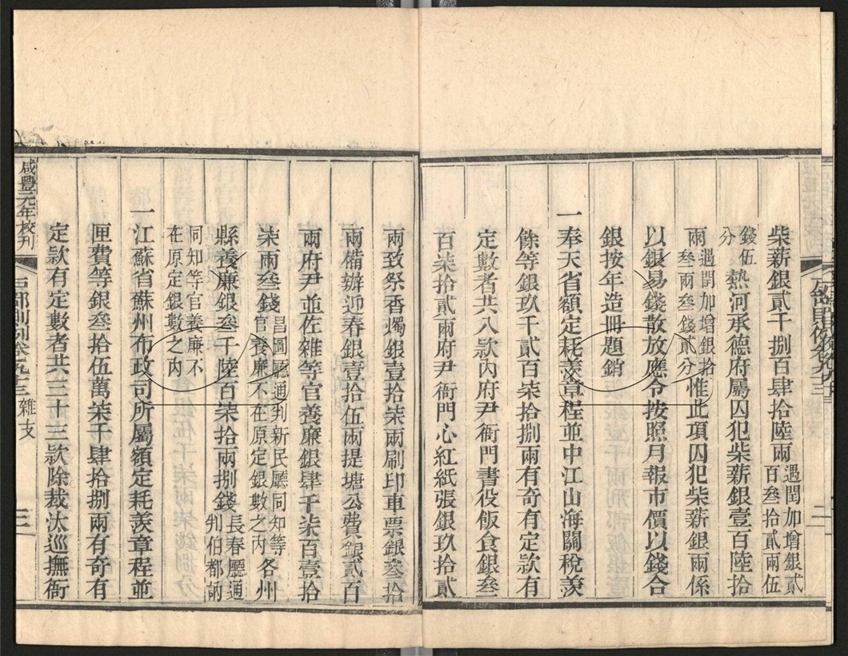 柴薪銀貳千捌百肆拾陸兩遇閏加增銀貳百叁拾貳兩伍
錢伍分熱河承德府屬囚犯柴薪銀壹百陸拾
兩遇閏加增銀拾叁兩叁錢貳分惟此項囚犯柴薪銀兩係
以銀易錢散放應令按照月報市價以錢合
銀按年造冊題銷
一奉天省額定耗羨章程並中江山海關稅羨
餘等銀玖千貳百柒拾捌兩有奇有定款有
定數者共八款內府尹衙門書役飯食銀叁
百柒拾貳兩府尹衙門心紅紙張銀玖拾貳
兩致祭香燭銀壹拾柒兩刷印車票銀叁拾
兩備辦迎春銀壹拾伍兩提塘公費銀貳百
兩府尹並佐雜等官養廉銀肆千柒百壹拾
柒兩叁錢昌圖廳通判新民廳同知等官養廉不在原定銀數之內各州
縣養廉銀叁千陸百柒拾兩捌錢長春廳通判伯都訥
同知等官養廉不在原定銀數之內
一江蘇省蘇州布政司所屬額定耗羨章程並
匣費等銀叁拾伍萬柒千肆拾捌兩有奇有
定款有定數者共三十三款除裁汰巡撫衙
咸豐元年校刊
戶部則例卷九十三 雜支
三
二